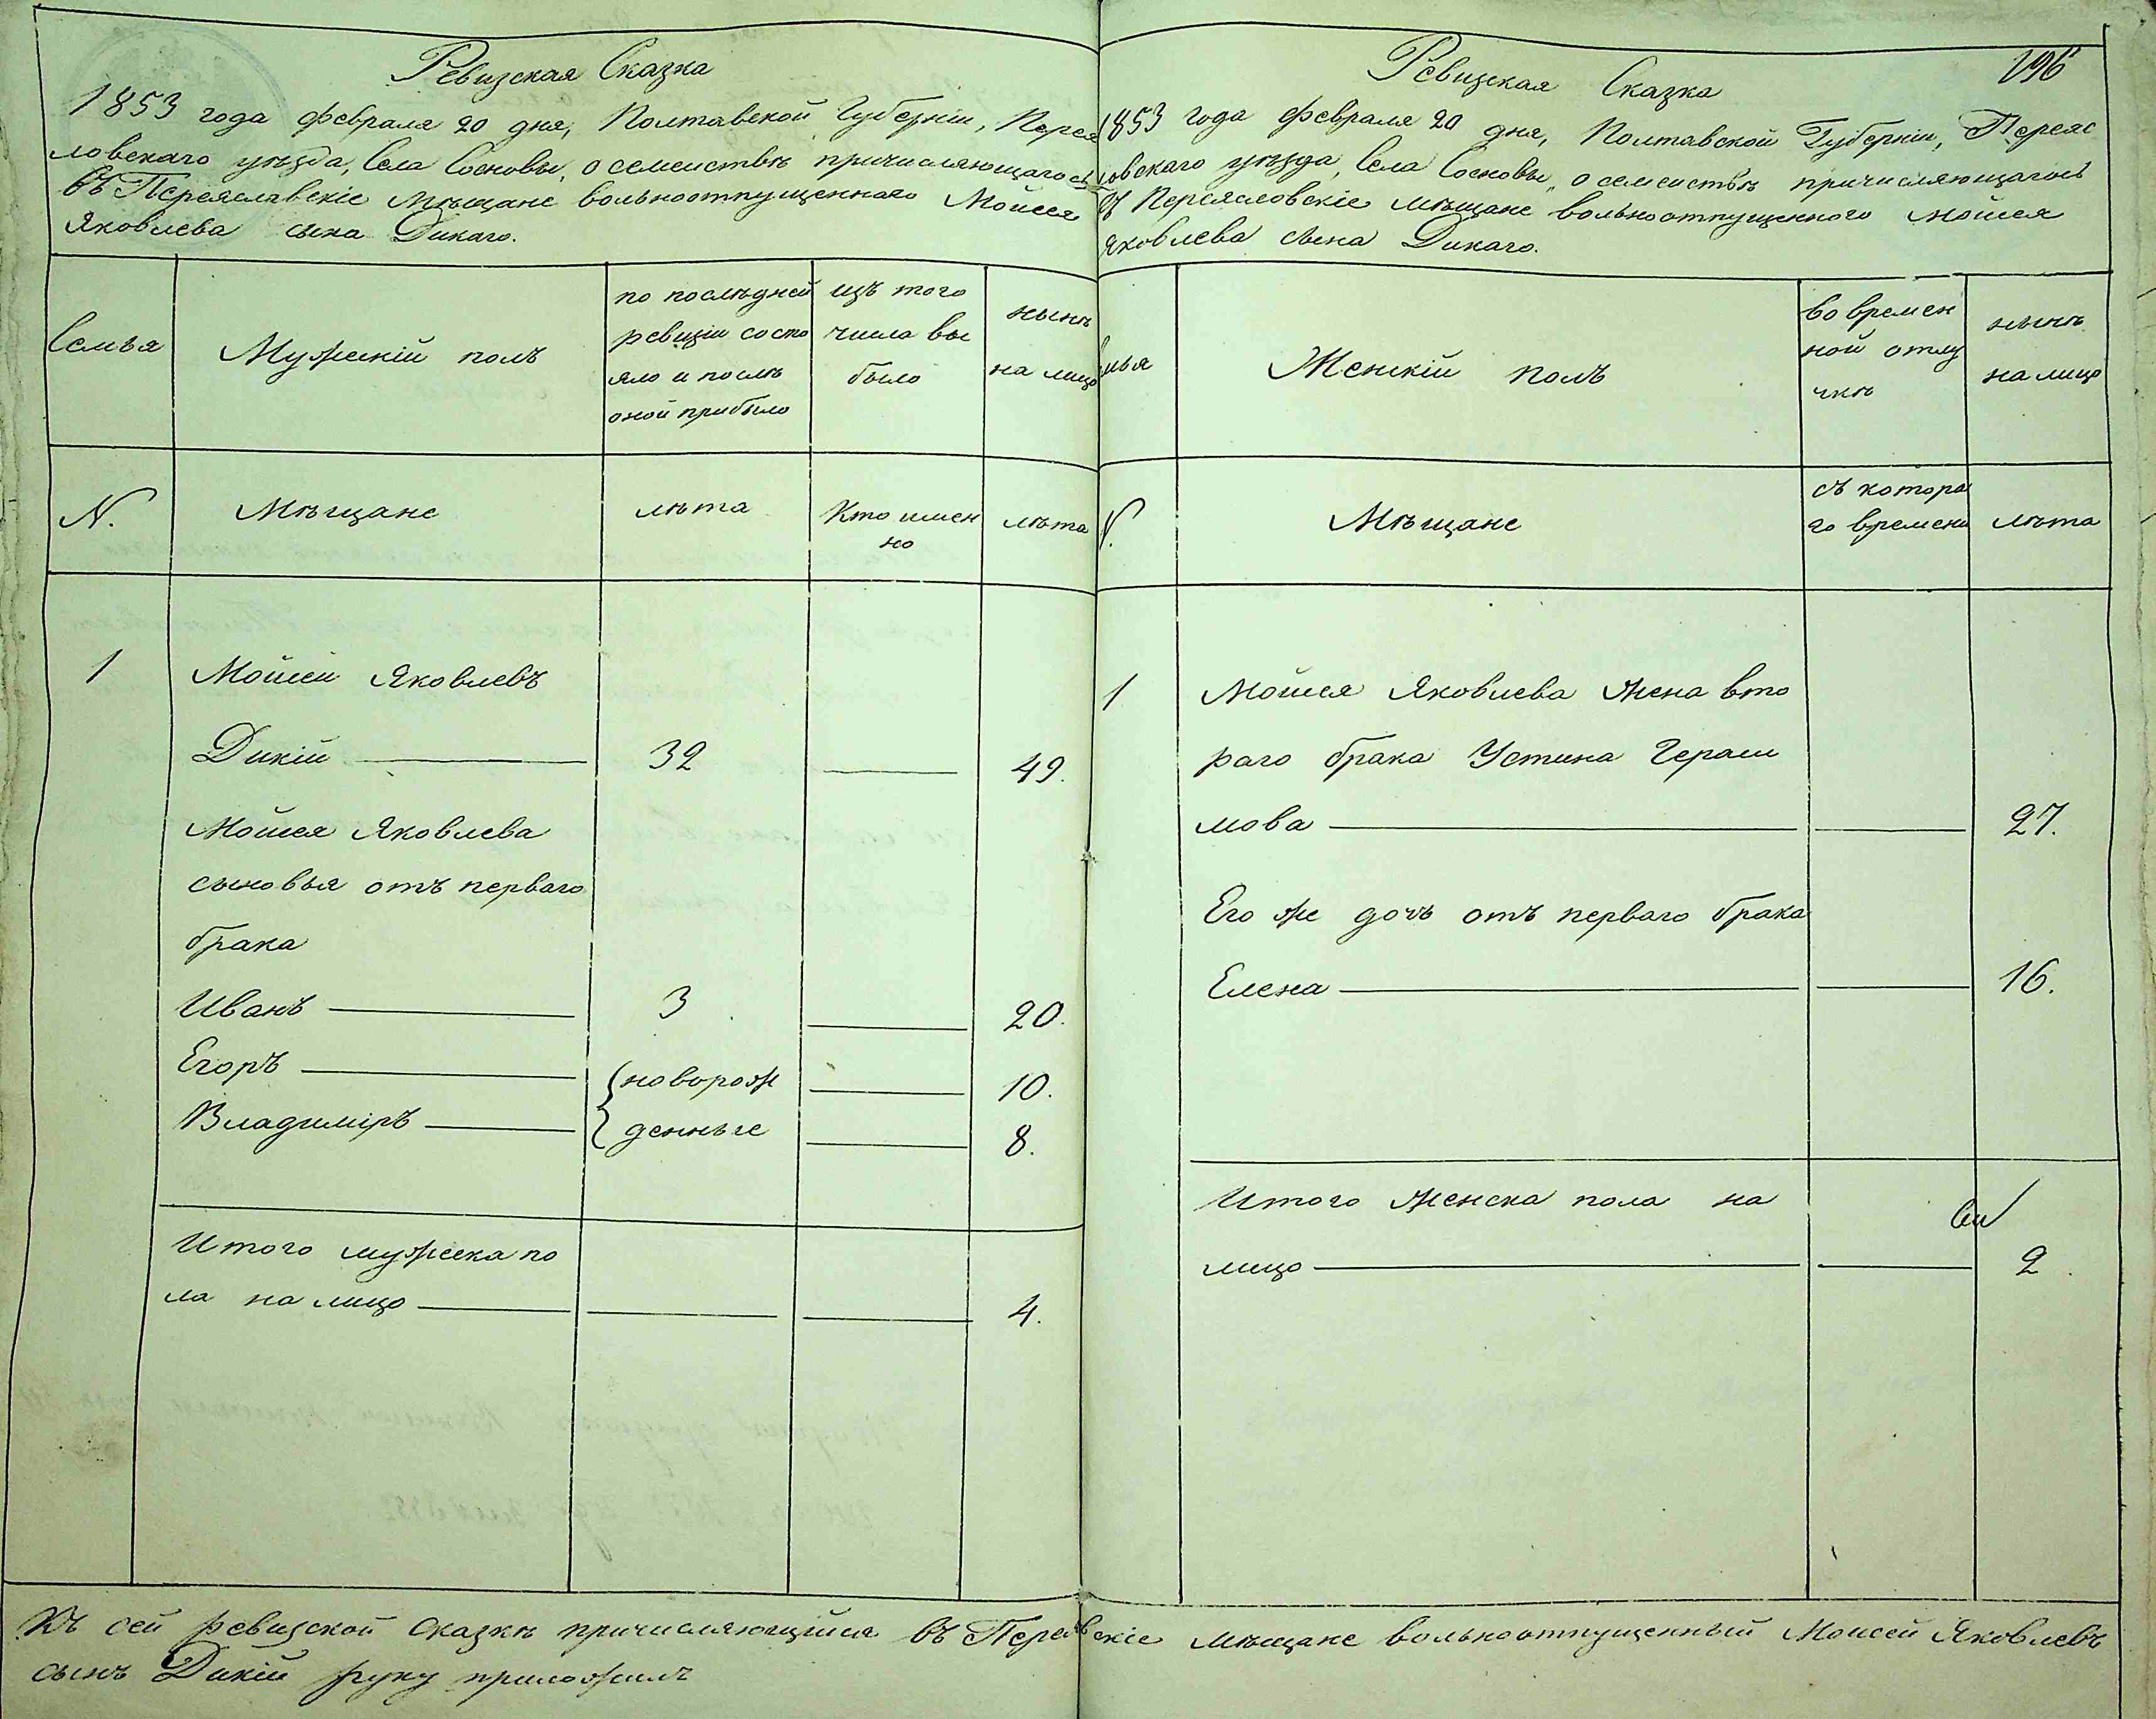 Ревизская Сказка
1853 года февраля 20 дня, Полтавской Губерніи, Перея
ловскаго уѣзда, Села Сосновы, о семействѣ причисляющагося
въ Переяславскіе мѣщане вольноотпущеннаго Мойсея
Яковлева сына Дикаго.
Семья
Мужскій полъ
по послѣдней
ревизіи состо
яло и послѣ
оной прибыло
изъ того
числа вы
было
нынѣ
на лицо
N.
Мѣщане
лѣта
Кто имен
но
лѣта
1
Мойсей Яковлевъ
Дикій 32 49.
Мойсея Яковлева
сыновья отъ перваго
брака
Иванъ 3 20.
Егоръ новорож 10.
Владиміръ денные 8.
Итого мужеска по
ла на лицо 4.
Ревизская Сказка
196
1853 года февраля 20 дня, Полтавской Губерніи, Переяс
ловскаго уѣзда, Села Сосновы, о семействѣ причисляющагось
въ Переясловскіе мѣщане вольноотпущенного Мойсея
Яковлева сына Дикаго.
мья
Женскій полъ
во времен
ной отлу
чкѣ
нынѣ
на лицо
N.
Мѣщане
съ котора
го времени
лѣта
1
Мойсея Яковлева жена вто
раго брака Устина Гераси
мова 27.
Его же дочь отъ перваго брака
Елена 16.
Итого женска пола на
лицо 2
Къ сей ревизской сказкѣ причисляющійся въ Переявскіе мѣщане вольноотпущенный Моисей Яковлевъ
сынъ Дикій руку приложилъ